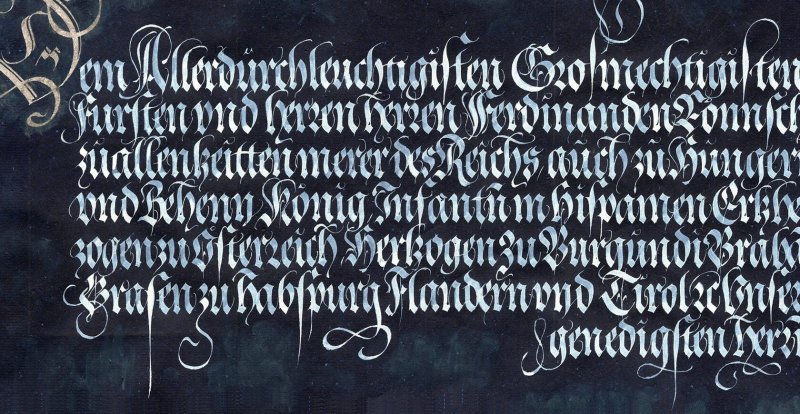 Dem Allerdurchleuchtigisten Grosmechtigisten
Fursten vnd herren herren Ferdinanden Römisch
zu allen Zeitten merer des Reichs auch zu Hunger
vnd Behem König Infantn in Hispanien Ertzhe
zogen zu Osterreich Hertzogen zu Burgundi Braba
Grafen zu Habspurg Flandern vnd Tirol ꝛc Vnser
genedigsten herr